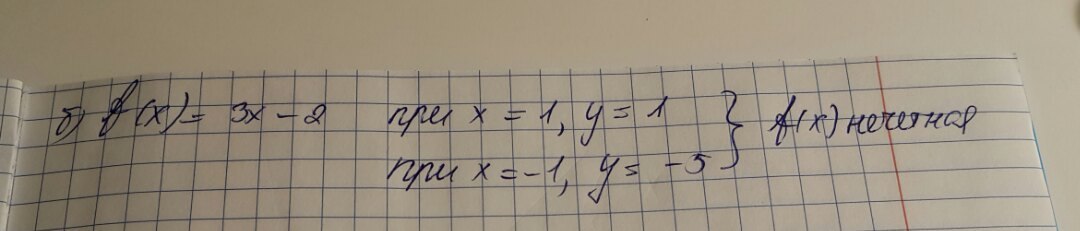 б) f(x) = 3x - 2 при x = 1, y = 1 } f(x) нечетная
при x = -1, y = -5